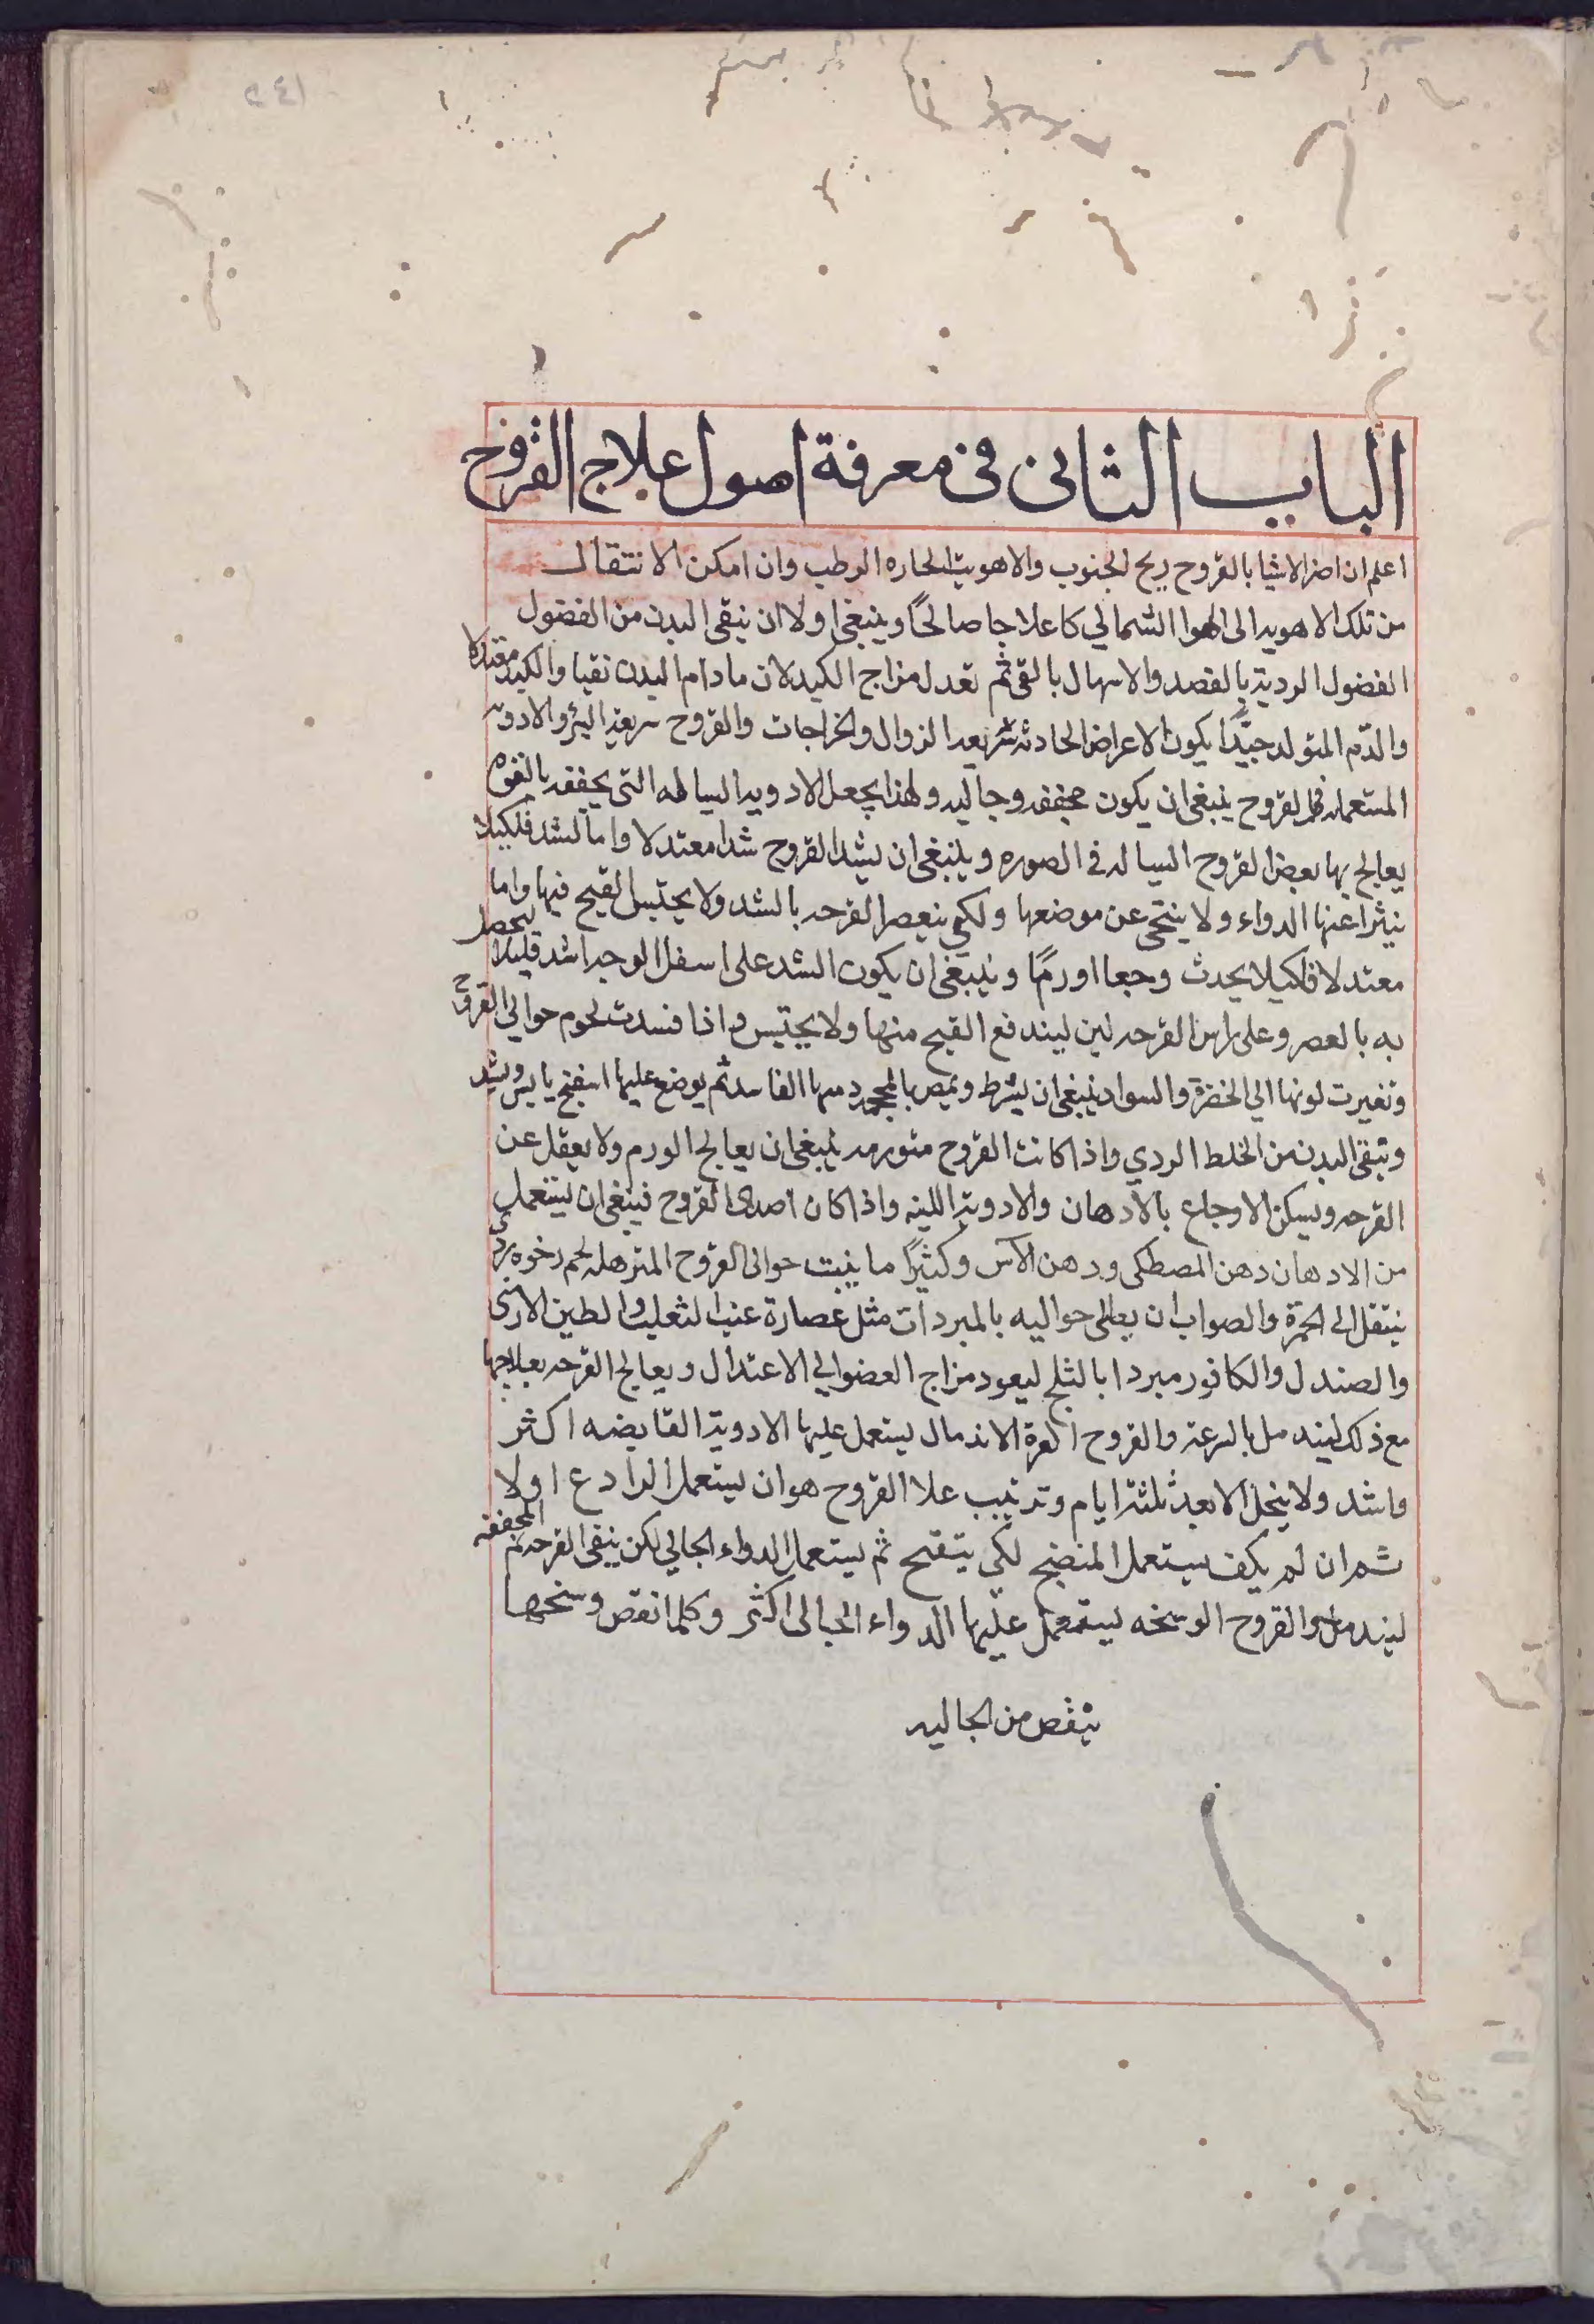 الباب الثانى فى معرفة اصول علاج القروح
اعلم ان اضر الاشيا بالقروح ريح الجنوب والاهوية الحاره الرطب وان امكن الانتقال
من تلك الاهويه الى الهوا الشمالي كا علاجا صالحًا وينبغى اولا ان ينقى البدن من الفضول
الفضول الردية بالفصد والاسهال بالقى ثم تعدل مزاج الكبد لان ما دام البدن نقيا والكبد معتدلا
والدّم المتولد جيّدًا يكون الاعراض الحادثه سريعه الزوال والخراجات والقروح سريعة البرؤ والادوية
المستعمله فى القروح ينبغى ان يكون مجففه وجاليه ولهذا يجعل الادويه السياله التى يجففه بالقوه
يعالج بها بعض القروح السياله فى الصوره وينبغى ان يشد القروح شدا معتدلا واما الشد فلكيلا
ينثر اعنها الدواء ولا ينتحى عن موضعها ولكي ينعصر القرحه بالشد ولا يحتبس القيح فيها واما
معتدلا فلكيلا يحدث وجعا اورمًا وينبغى ان يكون الشد على اسفل الوجه اشد قليلا ليحصل
به بالعصر وعلى راس القرحه لين ليندفع القيح منها ولا يحتبس واذا فسدت لحوم حوالي القروح
وتغيرت لونها الي الخضرة والسواد ينبغى ان يشرط ويمص بالمحجمة دمها الفاسد ثم يوضع عليها اسفنج يابس ويشد
وتنقى البدن من الخلط الردي واذا كانت القروح متورمه ينبغى ان يعالج الورم ولا يعقل عن
القرحه ويسكن الاوجاع بالادهان والادوية اللينه واذا كان اصدى القروح فينبغى ان يستعمل
من الادهان دهن المصطكى ودهن الآس وكثيرًا ما ينبت حوالى القروح المترهله لحم رخوه ردى
ينتقل الى الحمرة والصواب ان يطلى حواليه بالمبردات مثل عصارة عنب الثعلب والطين الارمنى
والصندل والكافور مبردا بالثلج ليعود مزاج العضو الي الاعتدال ويعالج القرحه بعلاجها
مع ذلك ليندمل بالسرعة والقروح العسرة الاندمال يستعمل عليها الادوية القابضه اكثر
واشد ولا ينحل الا بعد ثلثة ايام وترتيب علا القروح هو ان يستعمل الرادع اولا
ثم ان لم يكف يستعمل المنضج لكي يتقيح ثم يستعمل الدواء الجالي لكن ينقى القرحه ثم المجففه
ليندمل والقروح الوسخه يستعمل عليها الدواء الجالى اكثر وكلما انقص وسخها
ينقص من الجاليه